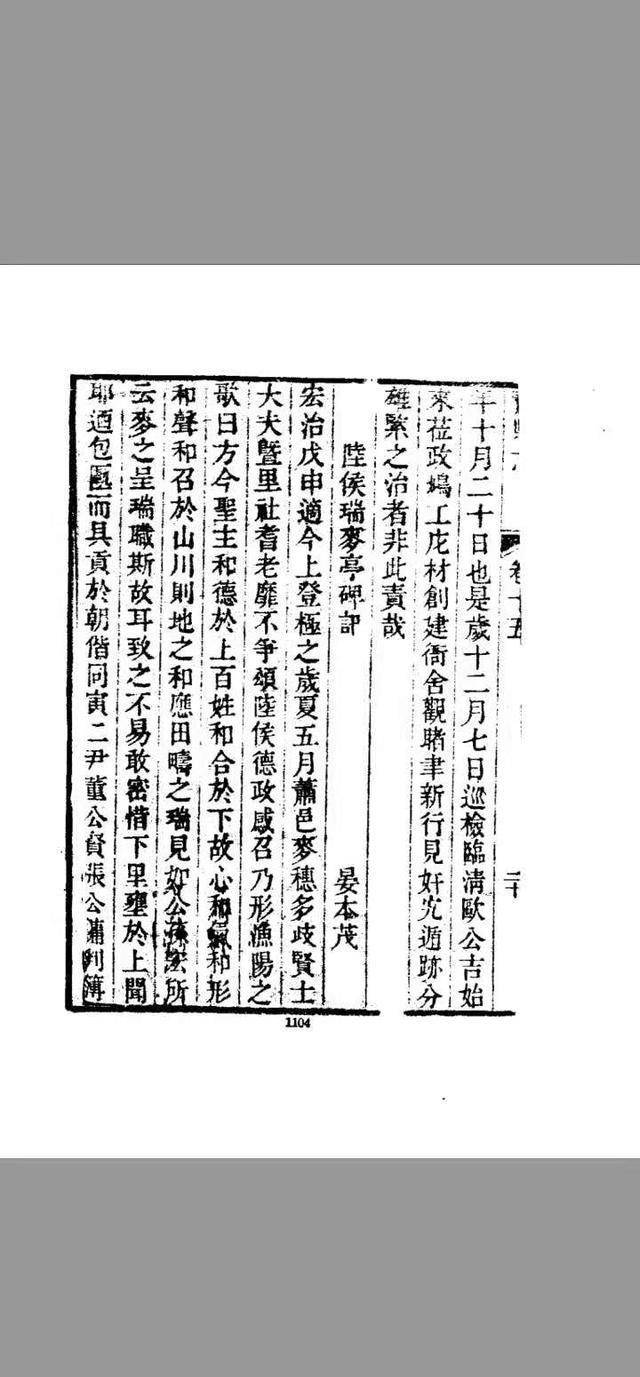 卷十五
二十
年十月二十日也是歲十二月七日巡檢臨淸歐公吉始
來莅政鳩工庀材創建衙舍觀睹聿新行見奸宄遁跡分
雄緊之治者非此責哉
陸侯瑞麥亭碑記 晏本茂
宏治戊申適今上登極之歲夏五月蕭邑麥穗多歧賢士
大夫曁里社耆老靡不爭頌陸侯德政感召乃形漁陽之
歌曰方今聖主和德於上百姓和合於下故心和氣和形
和聲和召於山川則地之和應田疇之瑞見如公孫宏所
云麥之呈瑞職斯故耳致之不易敢密惜下里壅於上聞
耶迺包匭而具貢於朝偕同寅二尹董公賢張公瀟判簿
1104